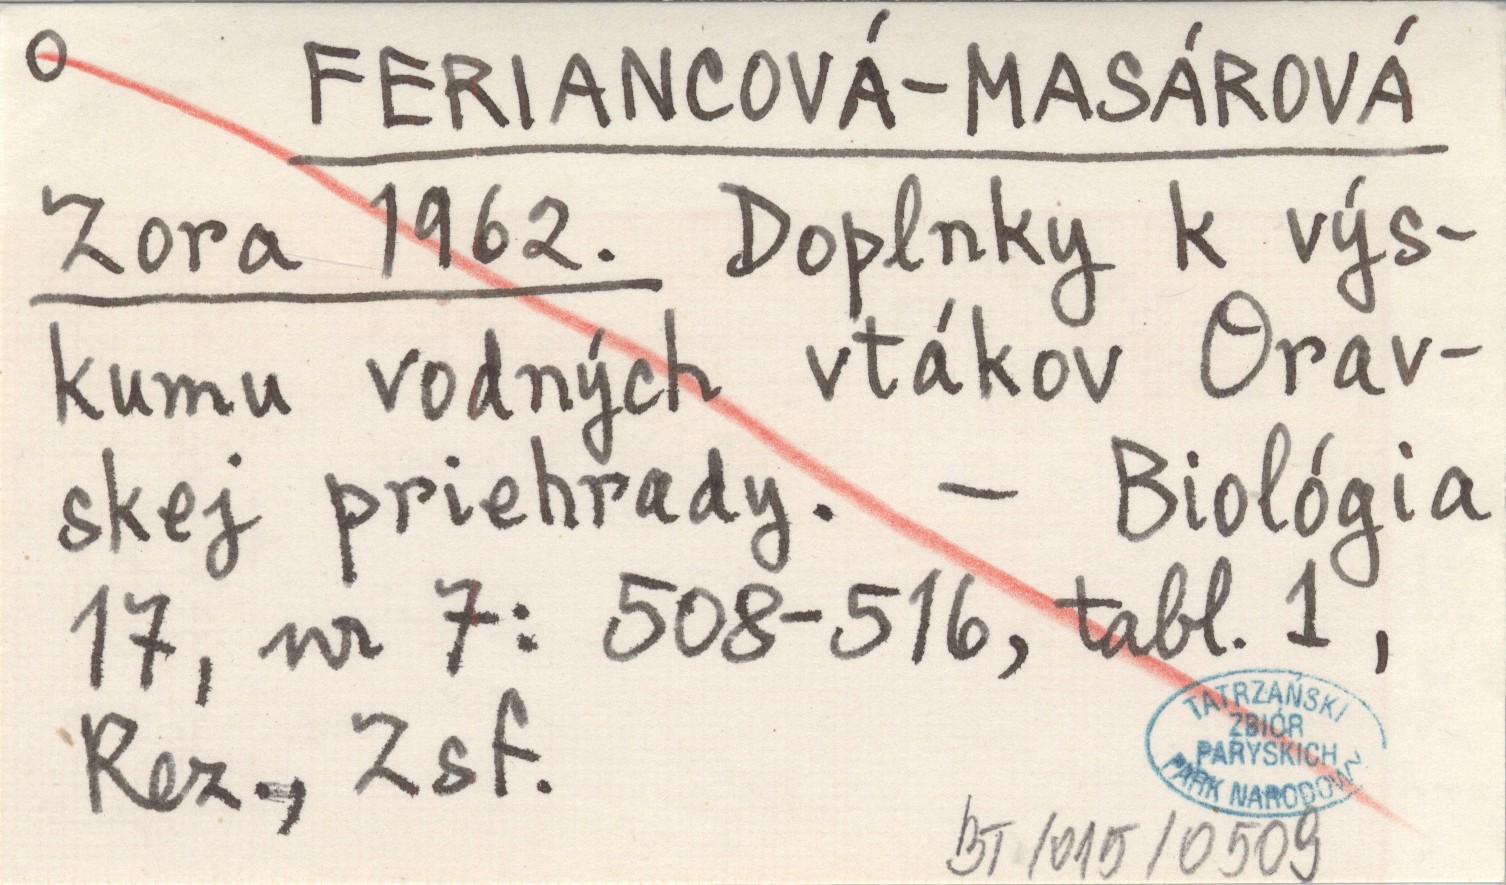 O FERIANCOVÁ-MASÁROVÁ
Zora 1962. Doplnky k výs-
kumu vodných vtákov Orav-
skej priehrady. - Biológia
17, nr 7: 508-516, tabl. 1,
Rez., Zsf.
TATRZAŃSKI
ZBIÓR
PARYSKICH
PARK NARODOWY
BT/015/0509